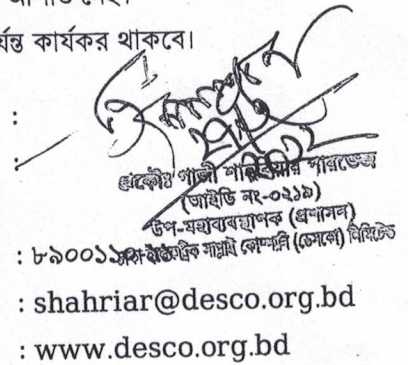 র্যন্ত কার্যকর থাকবে।
:
:
প্রকৌঃ গাজী শাহরিয়ার পারভেজ
(আইডি নং-০২১৯)
উপ-মহাব্যবস্থাপক (প্রশাসন)
: ৮৯০০১১ ইলেকট্রিক সাপ্লাই কোম্পানি (ডেসকো) লিমিটেড
: shahriar@desco.org.bd
: www.desco.org.bd